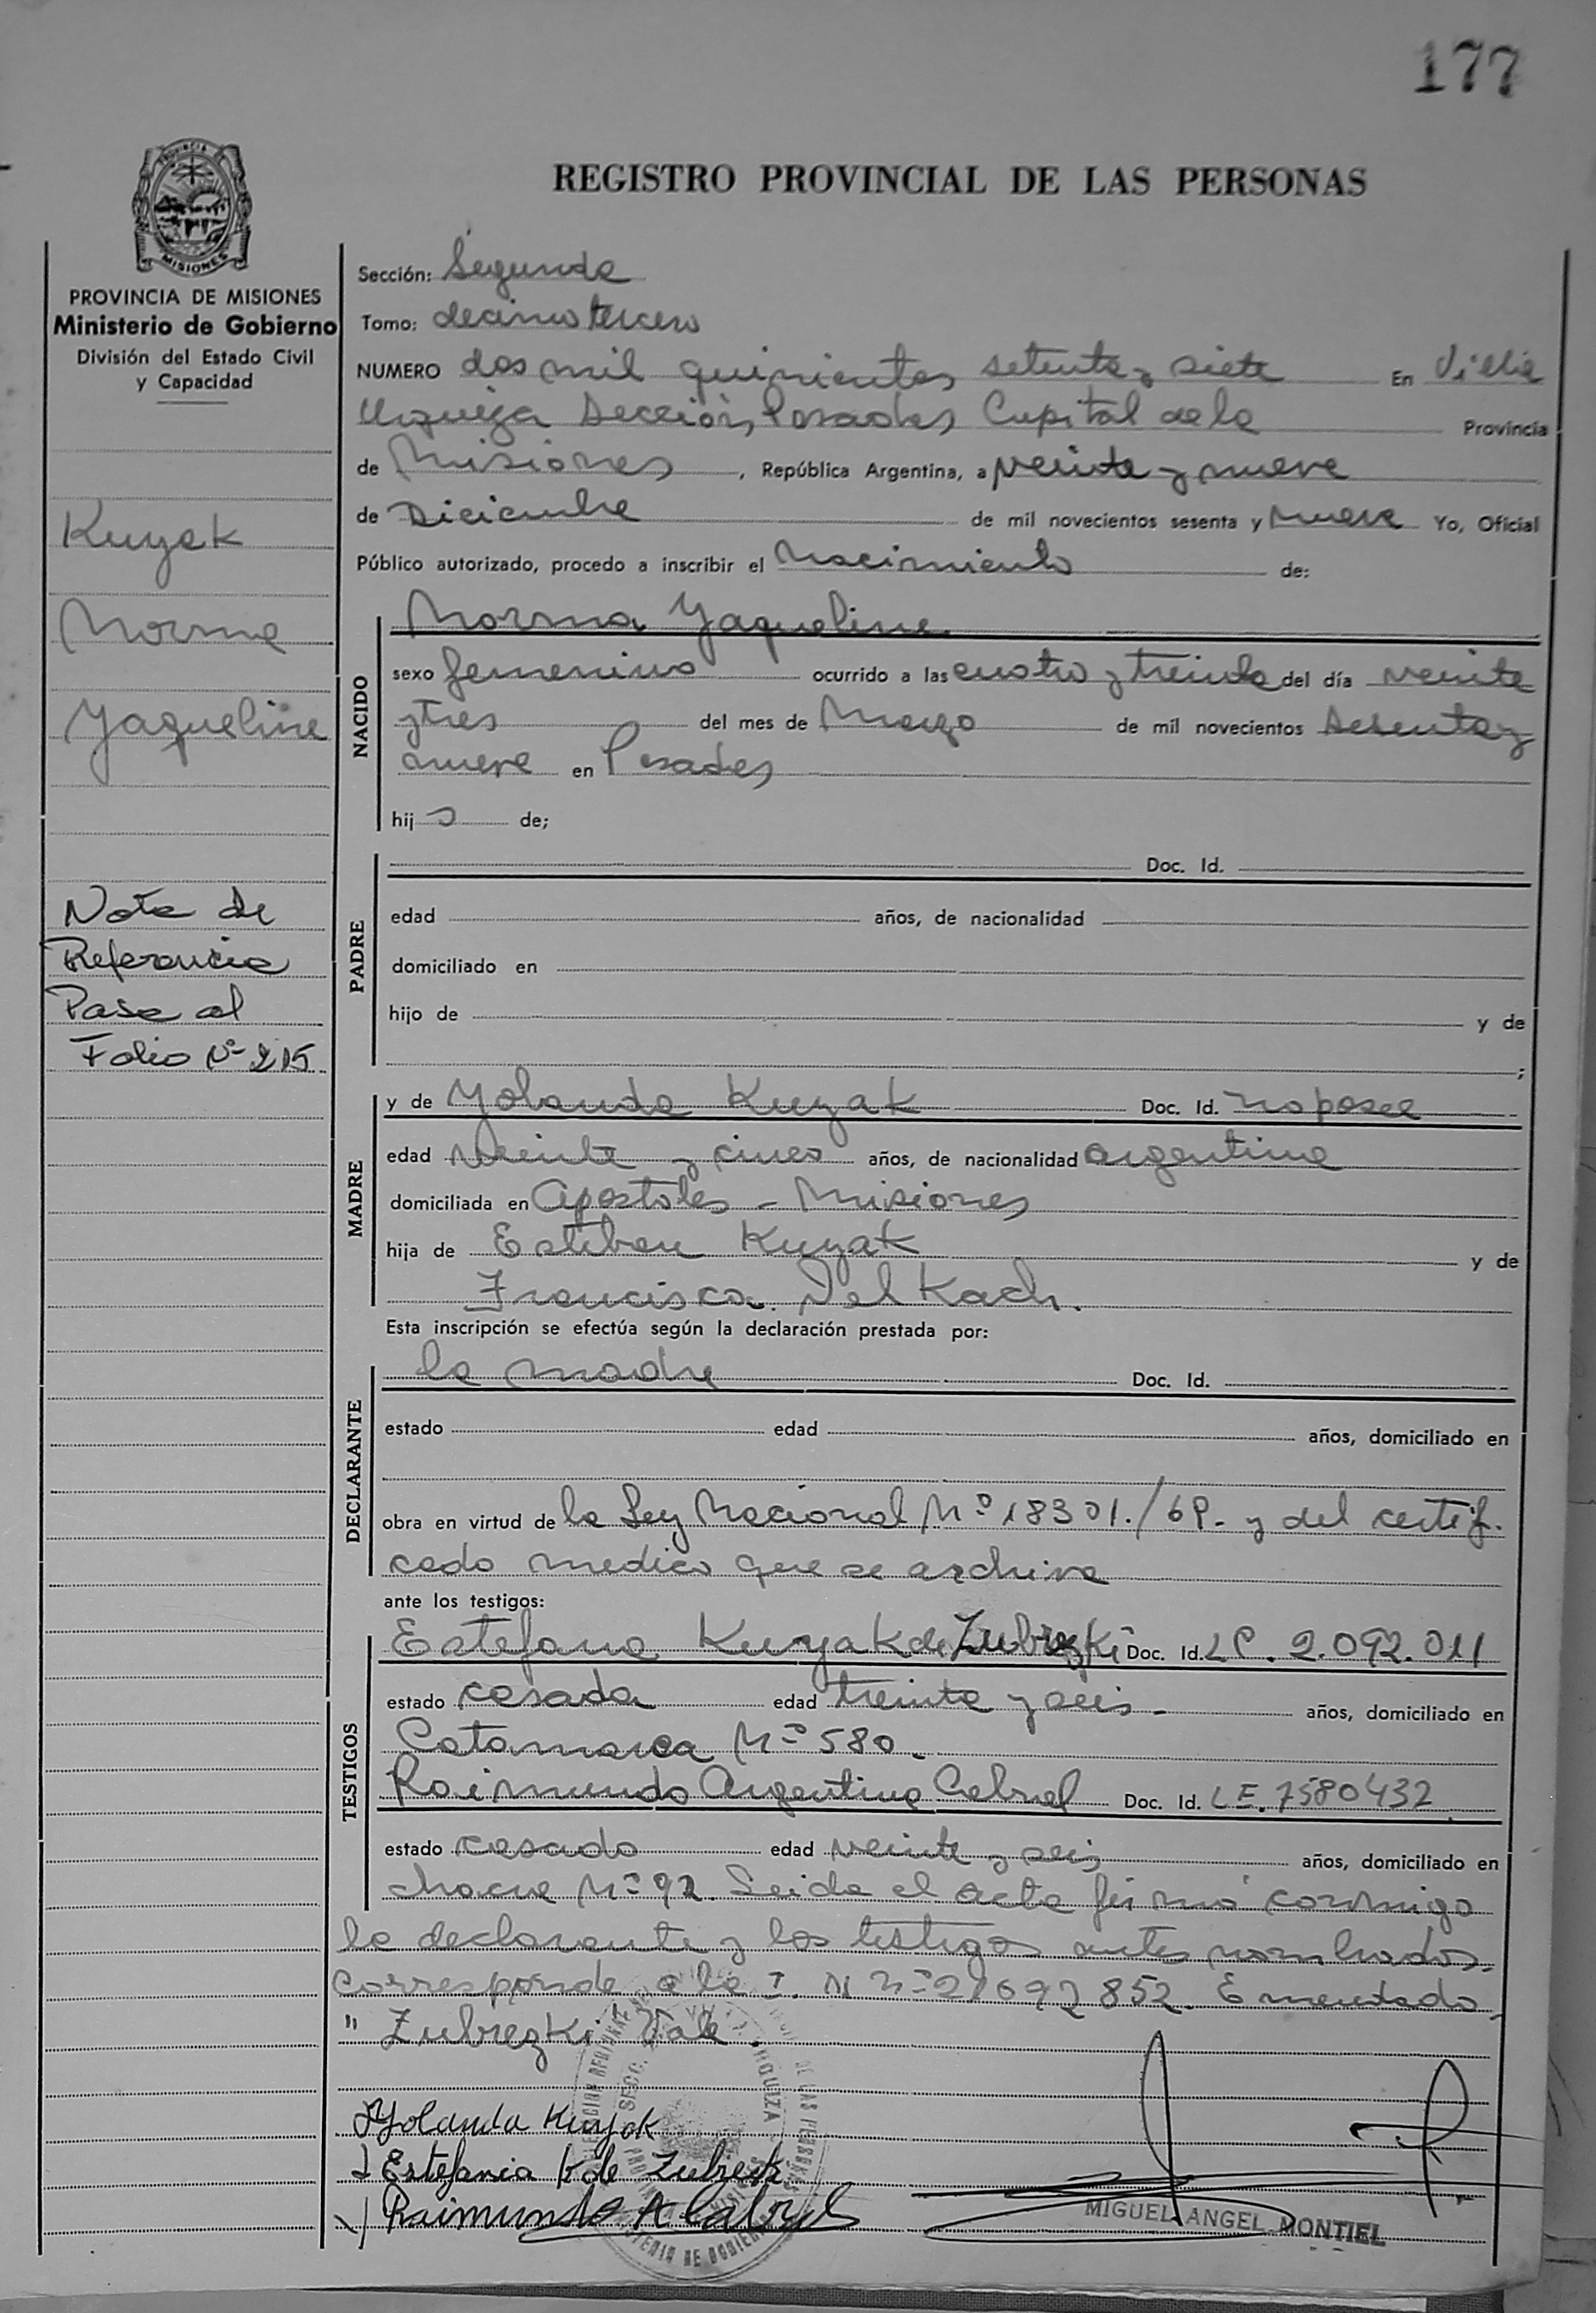 177
REGISTRO PROVINCIAL DE LAS PERSONAS
PROVINCIA
MISIONES
PROVINCIA DE MISIONES
Ministerio de Gobierno
División del Estado Civil
y Capacidad
Kuyak
Norma
Yaqueline
Nota de
Referencia
Pase al
Folio Nº 215
Sección: Segunda
Tomo: decimo tercero
NUMERO dos mil quinientos setenta y siete En Villa
Urquiza Sección, Posadas Capital de la Provincia
de Misiones, República Argentina, a veinte y nueve
de Diciembre de mil novecientos sesenta y nueve Yo, Oficial
Público autorizado, procedo a inscribir el Nacimiento de:
NACIDO
Norma Yaqueline
sexo femenino ocurrido a las cuatro y treinta del día veinte
y tres del mes de Marzo de mil novecientos sesenta y
nueve en Posadas
hij a de;
PADRE
Doc. Id.
edad años, de nacionalidad
domiciliado en
hijo de y de
;
MADRE
y de Yolanda Kuyak Doc. Id. no posee
edad veinte y cinco años, de nacionalidad argentina
domiciliada en Apostoles - Misiones
hija de Esteban Kuyak y de
Francisca Delkach.
Esta inscripción se efectúa según la declaración prestada por:
DECLARANTE
la madre Doc. Id.
estado edad años, domiciliado en
obra en virtud de la Ley Nacional Nº 18301./69.- y del certifi.
cado medico que se archiva
ante los testigos:
TESTIGOS
Estefana Kuyak de Zubrezki Doc. Id. LC. 2.092.011
estado casada edad treinta y seis - años, domiciliado en
Catamarca Nº 580.
Raimundo Argentino Cabral Doc. Id. LE. 7580432
estado casado edad veinte y seis años, domiciliado en
chacra Nº 92. Leida el acta firmó conmigo
la declarante y los testigos antes nombrados.
Corresponde a la I. N Nº 21692852. Emendado
" Zubrezki Vale
Yolanda Kuyak
Estefania K de Zubrezki
Raimundo A Cabral
MIGUEL ANGEL MONTIEL